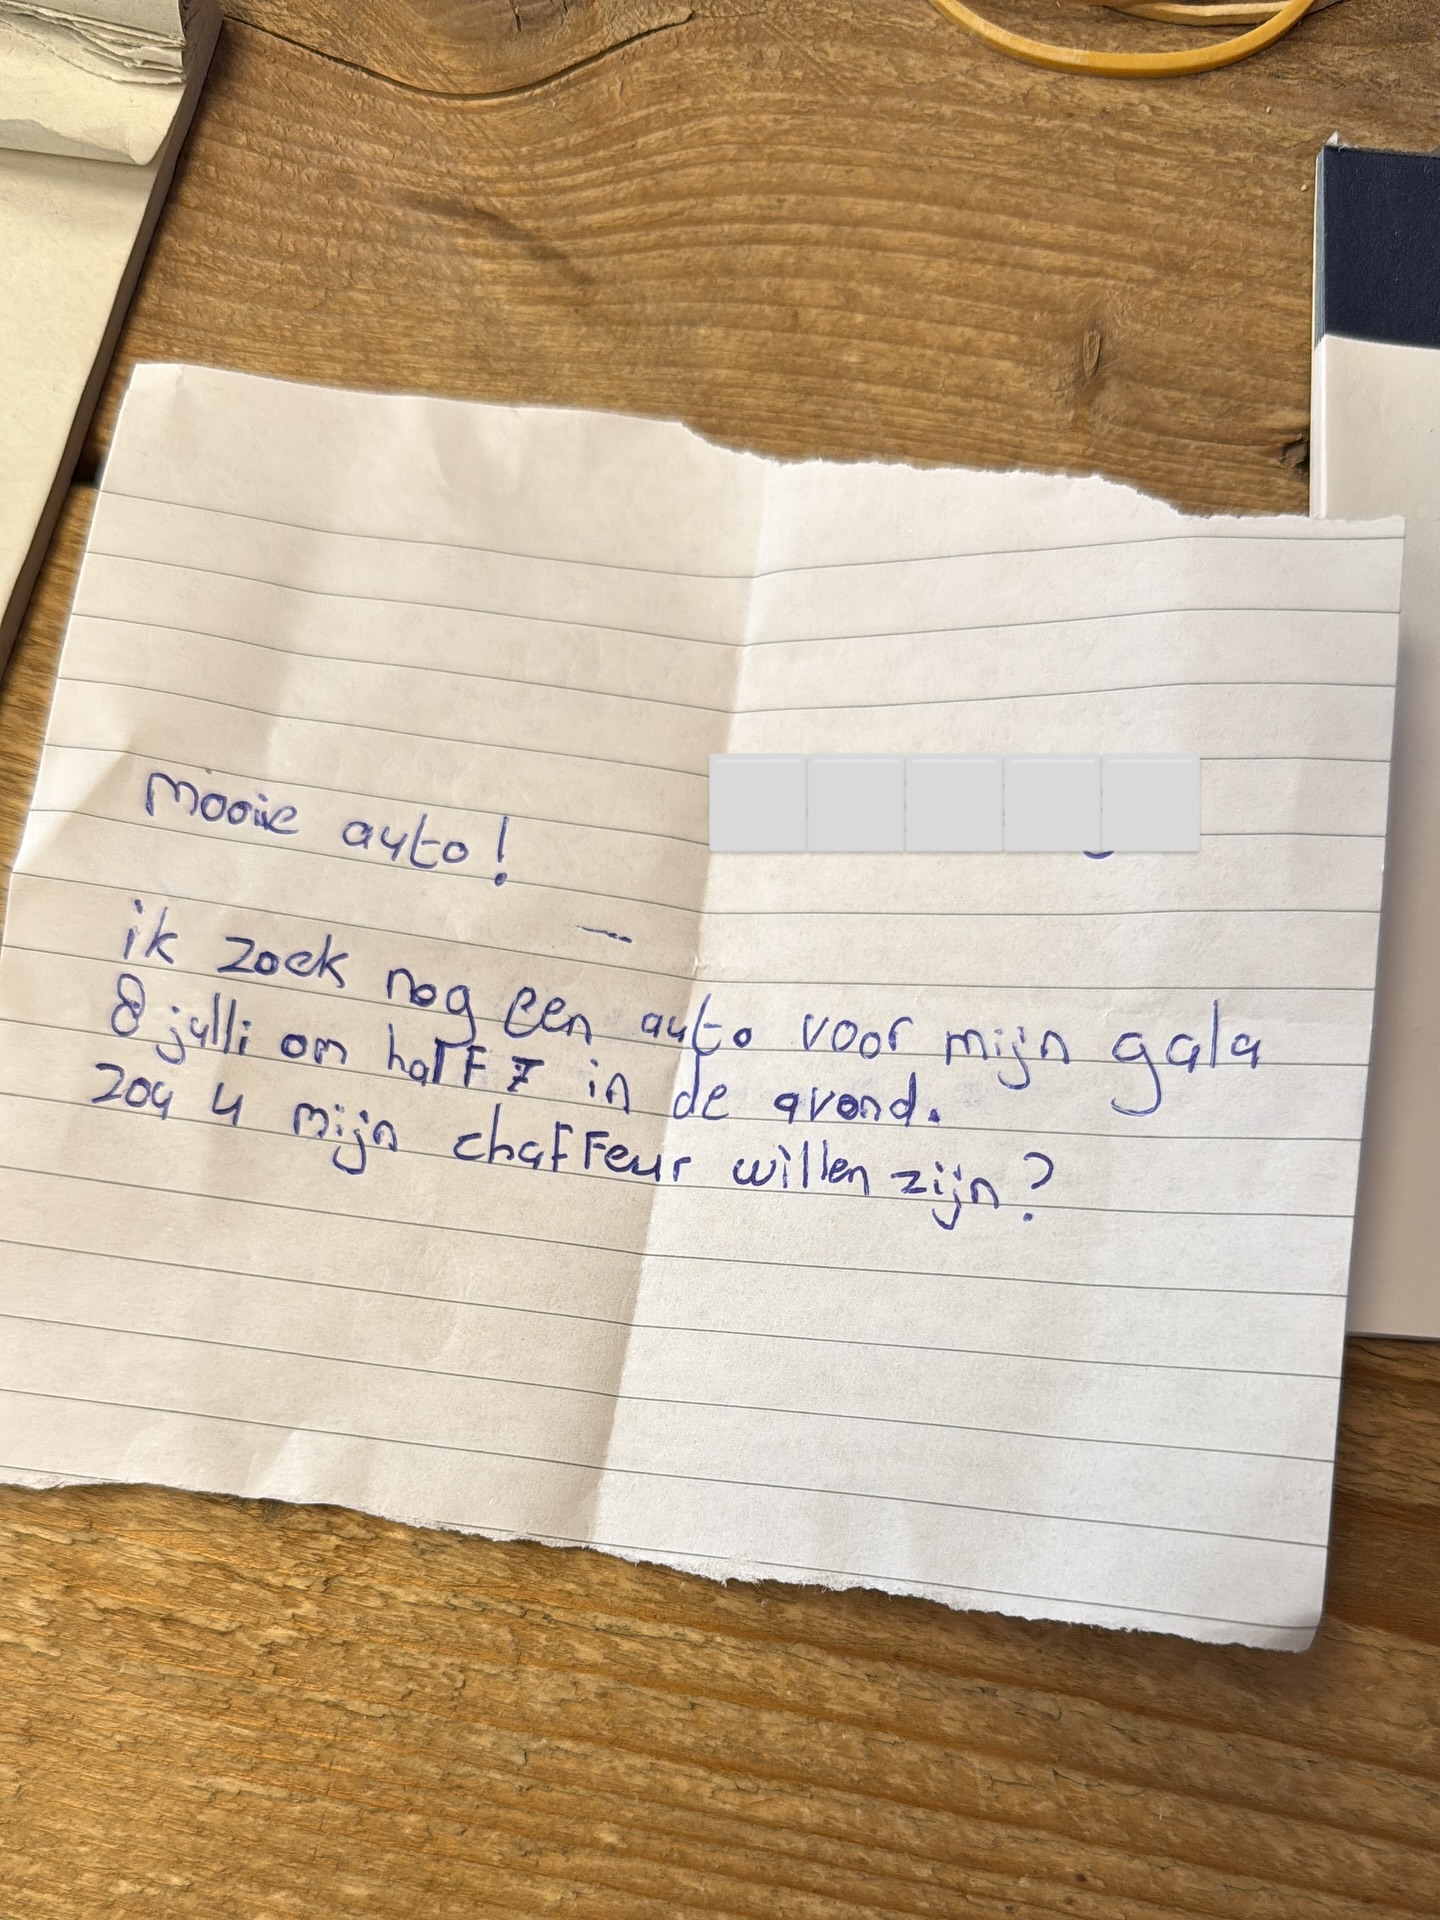 mooie auto!
ik zoek nog een auto voor mijn gala
8 julli om half 7 in de avond.
zou u mijn chaffeur willen zijn?